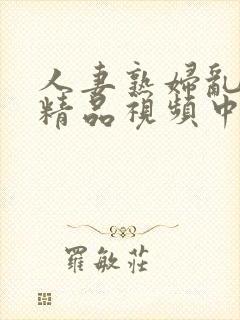 人妻熟婦亂
精品視頻中
羅敏莊